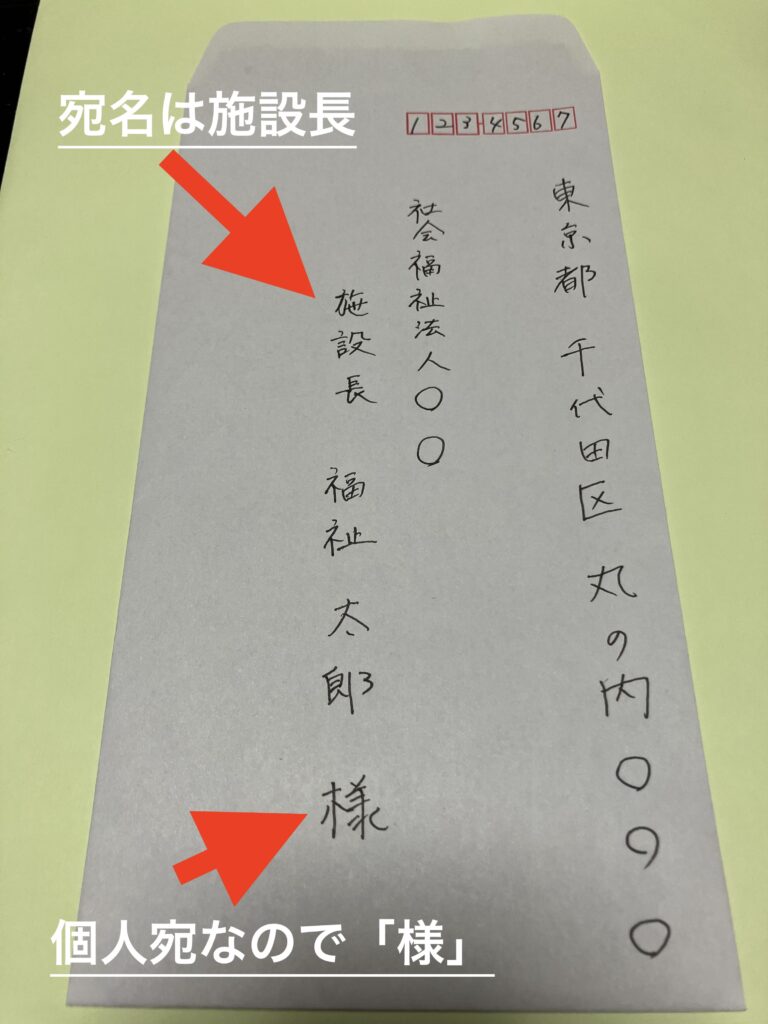 宛名は施設長
1234567
東京都 千代田区 丸の内○○○
社会福祉法人○○
施設長 福祉 太郎 様
個人宛なので「様」